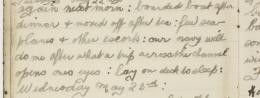 again next morn: boarded boat after
dinner & moved off after tea: few sea-
planes & other escorts: our navy will
do me after what a trip across the channel
opens ones eyes: lay on deck to sleep:
Wednesday May 23rd: